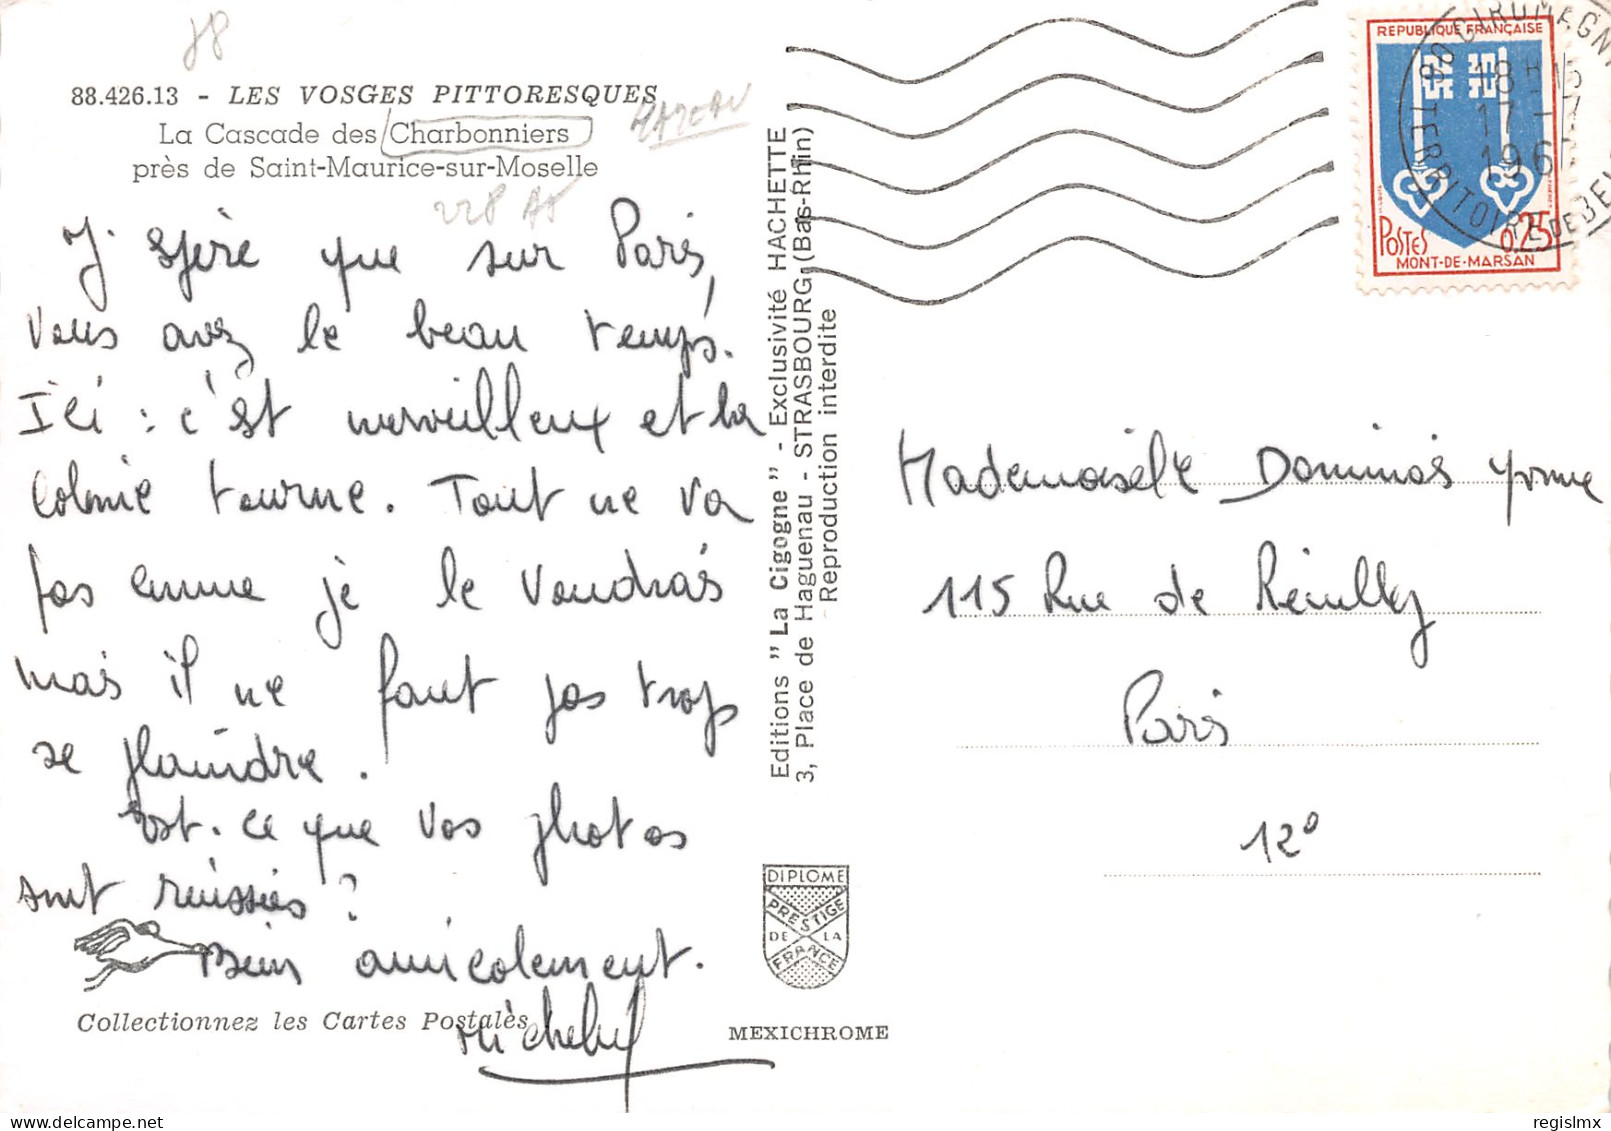 88.426.13 - LES VOSGES PITTORESQUES
La Cascade des Charbonniers
près de Saint-Maurice-sur-Moselle
MAZEAU
228 A8
J'espère que sur Paris,
vous avez le beau temps.
Ici : c'est merveilleux et la
Colonie tourne. Tout ne va
pas comme je le voudrais
mais il ne faut pas trop
se plaindre.
Est-ce que vos photos
sont réussies ?
Bien amicalement.
Collectionnez les Cartes Postales
Editions "La Cigogne" - Exclusivité HACHETTE
3, Place de Haguenau - STRASBOURG (Bas-Rhin)
Reproduction interdite
DIPLOME
PRESTIGE
DE LA
FRANCE
MEXICHROME
REPUBLIQUE FRANÇAISE
POSTES 0,25
MONT-DE-MARSAN
90 GIROMAGNY
18H15
17-7
1967
TERRITOIRE DE BE
Mademoiselle Dominois Yvonne
115 Rue de Reuilly
Paris
12°
regislmx